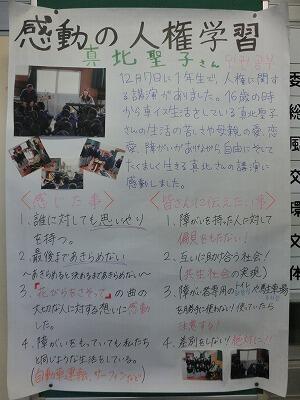 感動の人権学習
真北聖子さん
12月7日に1年生で、人権に関す
る講演がありました。16歳の時
から車イス生活をしている真北聖子
さんの生活の苦しさや母親の愛、恋
愛、障がいがありながら自由にそして
たくましく生きる真北さんの講演に
感動しました。
<感じた事>
1、誰に対しても思いやり
を持つ。
2、最後まであきらめない
〜あきらめると決めるまであきらめない〜
3、「花からをさそって」の曲の
大切な人に対する想いに感動
した。
4、障がいをもっていても私たち
と同じような生活をしている。
(自動車運転、サーフィンなど)
<皆さんに伝えたい事>
1、障がいを持った人に対して
偏見をもたない!
2、互いに助け合う社会!
(共生社会の実現)
3、障がい者専用のトイレや駐車場
を勝手に使わない!使っていたら
注意する!
4、差別をしない!絶対に!!
委
総
風
交
環
文
体